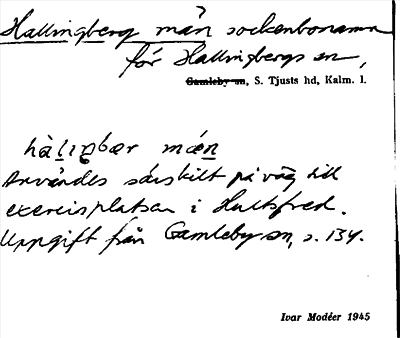 Hallingberg män sockenbonamn
för Hallingbergs sn,
Gamleby sn, S. Tjusts hd, Kalm. l.
hàliŋbær mǽn
Användes särskilt på väg till
exercisplatsen i Hultsfred.
Uppgift från Gamleby sn, s. 134.
Ivar Modéer 1945